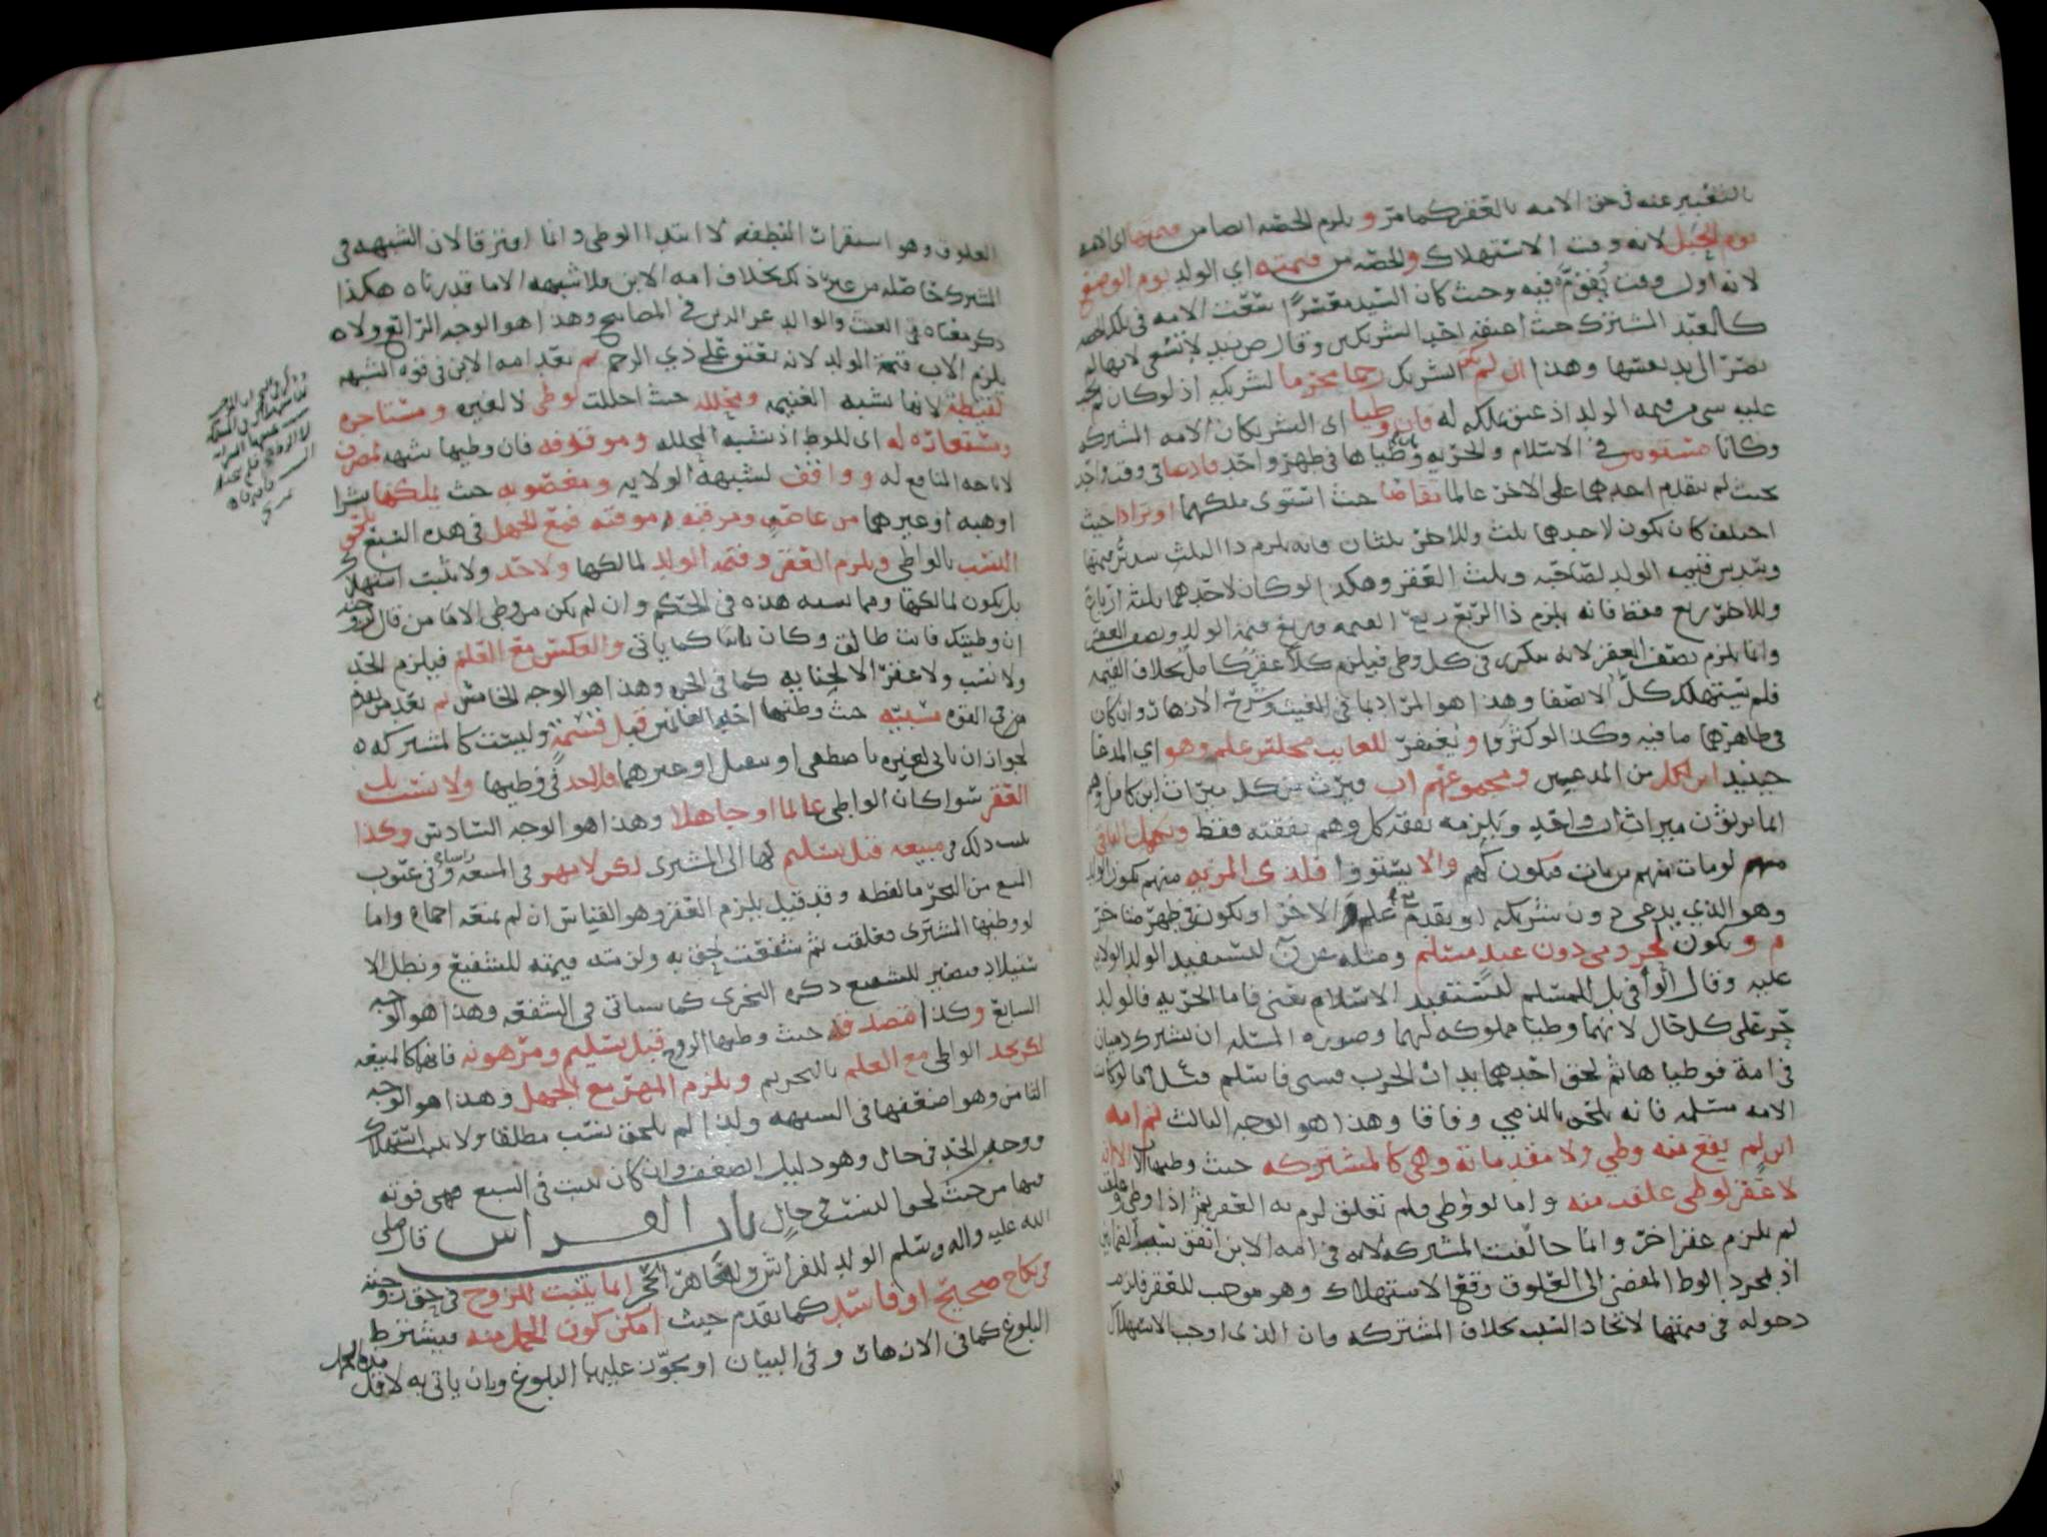 بالتعبير عنه في حق الامه بالعقر كما مر و يلزم الحصه ايضا من قيمتها اي الامه
يوم الحبل لانه وقت الاستهلاك والحصه من قيمته اي الولد يوم الوضع
لانه اول وقت يقوم فيه وحيث كان السيد معسرا سعت الامه في تلك الحصه
كالعبد المشترك حيث اعتقه احد الشريكين وقال ص بالله لا تسعى لانها لم
تصر الى يد نفسها وهذا ان لم يكن الشريك رحما محرما لشريكه اذ لو كان لم يجب
عليه شي من قيمه الولد اذ عتق بملكه له فان وطيا اي الشريكان الامه المشتركه
وكانا مستويين في الاسلام والحريه وطياها في طهر واحد فادعيا في وقت واحد
بحيث لم يتقدم احدهما على الاخر عالما تقاصا حيث استوى ملكهما او ترادا حيث
اختلف كان يكون لاحدهما ثلث وللاخر ثلثان فانه يلزم ذا الثلث سدس قيمتها
وسدس قيمه الولد لصاحبه وثلث العقر وهكذا لو كان لاحدهما ثلثة ارباع
وللاخر ربع فقط فانه يلزم ذا الربع ربع القيمه وربع قيمة الولد ونصف العقر
وانما يلزم نصف العقر لانه يتكرر في كل وطي فيلزم كلا عقر كامل بخلاف القيمه
فلم يستهلك كل الا نصفا وهذا هو المراد بما في الغيث وشرح الازهار وان كان
في ظاهرهما ما فيه وكذا لو كثروا ويغتفر للغايب مجلس علم وهو اي المدعا
حينيد ابن لكل من المدعيين ومجموعهم اب فيرث من كل ميراث ابن كامل وهم
انما يرثون ميراث اب واحد ويلزمه نفقة كل وهم نفقته فقط ويكمل الباقي
منهم لو مات منهم من مات فيكون لهم والا يستووا فلذي المزيه منهم يكون الولد
وهو الذي يدعي دون شريكه او يتقدم علم الاخر او يكون في طهر متاخر
م ويكون لحر ذمي دون عبد مسلم ومثله عن ن ليستفيد الولد الولايه
عليه وقال الوافي بل للمسلم ليستفيد الاسلام يعني فاما الحريه فالولد
حر على كل حال لانهما وطيا مملوكه لهما وصورة المسله ان يشترك ذميان
في امة فوطياها ثم لحق احدهما بدار الحرب فسبي فاسلم فاما لو كانت
الامه مسلمه فانه يلحق بالذمي وفاقا وهذا هو الوجه الثالث ثم امه
ابن لم يقع منه وطي ولا مقدماته وهي كالمشتركه حيث وطيها الاب الا ان
لا عقر لوطي علقت منه واما لو وطي فلم تعلق لزم به العقر ثم اذا وطي وعلقت
لم يلزم عقر اخر وانما خالفت المشتركه لانه في امه الابن اتفق سبب القيمتين
اذ بمجرد الوطا المفضي الى العلوق وقع الاستهلاك وهو موجب للعقر فلزم
دخوله في قيمتها لاتحاد السبب بخلاف المشتركه فان الذي اوجب الاستهلاك
العلوق وهو استقرار النطفه لا ابتدا الوطي وانما افترقا لان الشبهه في
المشترك حاصله من غير ذلك بخلاف امه الابن فلا شبهه الا ما قدرناه هكذا
ذكر معناه في الغيث والوالد عز الدين في المصابيح وهذا هو الوجه الرابع ولا
يلزم الاب قيمة الولد لانه يعتق على ذي الرحم ثم بعد امه الابن في قوه الشبهه
لقيطة لانها تشبه الغنيمه ومحلله حيث احللت لوطي لا لغيره ومستاجره
ومستعاره له اي للوطا اذ تشبه المحلله وموقوفه فان وطيها شبهه لمصرف
لاباحه المنافع له وواقف لشبهة الولايه ومغصوبه حيث يملكها بشرا
او هبه او غيرهما من غاصب ومرقبه وموقته فمع الجهل في هذه التسع يلحق
النسب بالواطي ويلزم العقر وقيمه الولد لمالكها ولا حد ولا يثبت استهلاك
بل يكون لمالكها ومما يشبه هذه في الحكم وان لم يكن من وطي الاما من قال لزوجته
ان وطيتك فانت طالق وكان باينا كما ياتي والعكس مع العلم فيلزم الحد
ولا نسب ولا عقر الا لجنايه كما في الحره وهذا هو الوجه الخامس ثم بعد من تقدم
في القوه مسبيه حيث وطيها احد الغانمين قبل قسمة وليست كالمشتركه
لجواز ان ياتي لغيره باصطفى او تنفيل او غيرهما فلا حد في وطيها ولا نسب بل
العقر سوا كان الواطي عالما او جاهلا وهذا هو الوجه السادس وكذا
يثبت ذلك في مبيعه قبل تسليم لها الى المشترى لكن لا مهر في المبيعه
البيع من البحر ما لفظه وقد قيل يلزم العقر وهو القياس ان لم يمنعه اجماع واما
لو وطيها المشتري فعلقت ثم شفعت لحق به ولزمته قيمته للشفيع وبطل الا
ستيلاد فتصير للشفيع ذكره النجري كما سياتي في الشفعه وهذا هو الوجه
السابع وكذا مصدقه حيث وطيها الزوج قبل تسليم ومرهونه فانها كالمبيعه
لكن يحد الواطي مع العلم بالتحريم ويلزم المهر مع الجهل وهذا هو الوجه
الثامن وهو اضعفها في الشبهه ولذا لم يلحق نسب مطلقا ولا يثبت استهلاك
ووجب الحد في حال وهو دليل الضعف وان كان ليست في البيع فهي فوقه
فيها من حيث لحوق النسب في حال باب الفراش قال صلى
الله عليه واله وسلم الولد للفراش وللعاهر الحجر انما يثبت للزوج في حق زوجته
في نكاح صحيح او فاسد كما تقدم حيث امكن كون الحمل منه فيشترط
البلوغ كما في الازهار وفي البيان او يجوز عليهما البلوغ وبان ياتي به لاقل
مده الحمل